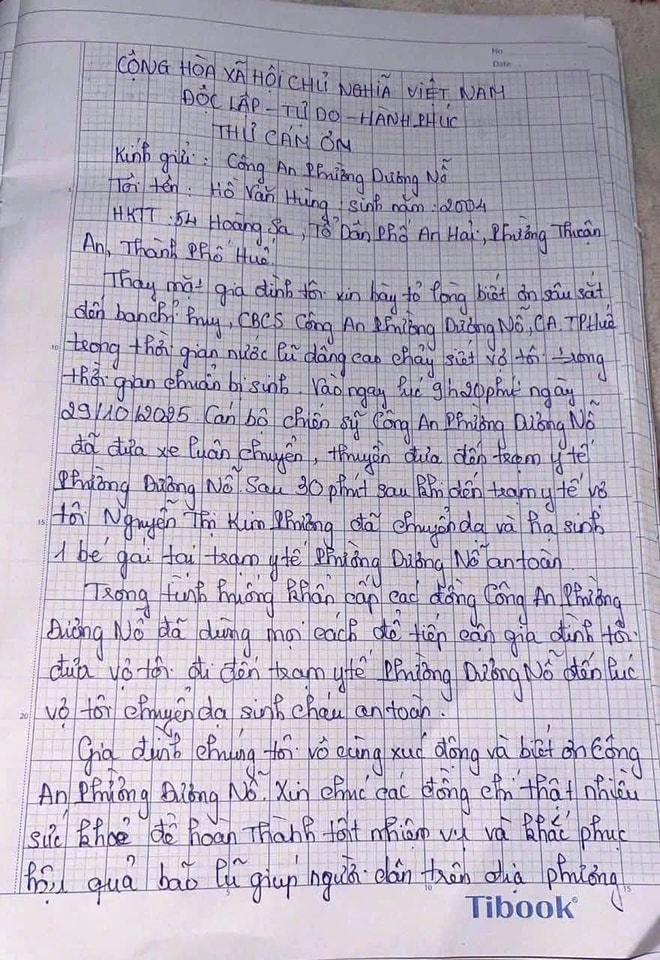 No
Date
CỘNG HÒA XÃ HỘI CHỦ NGHĨA VIỆT NAM
ĐỘC LẬP - TỰ DO - HÀNH PHÚC
THƯ CẢM ƠN
Kính gửi : Công An Phường Dương Nỗ
Tôi tên : Hồ Văn Hùng ; sinh năm : 2004
HKTT : 54 Hoàng Sa, Tổ Dân Phố An Hải, Phường Thuận
An, Thành Phố Huế.
Thay mặt gia đình tôi xin bày tỏ lòng biết ơn sâu sắt
đến ban chỉ huy, CBCS Công An Phường Dương Nỗ, CA. TP Huế
10 trong thời gian nước lũ dâng cao chảy siết vợ tôi trong
thời gian chuẩn bị sinh. Vào ngay lúc 9h20 phút ngày
29/10/2025 Cán bộ chiến sỹ Công An Phường Dương Nỗ
đã đưa xe luân chuyển, thuyền đưa đến trạm y tế
Phường Dương Nỗ. Sau 30 phút sau khi đến trạm y tế vợ
15 tôi Nguyễn Thị Kim Phường đã chuyển dạ và hạ sinh
1 bé gái tại trạm y tế Phường Dương Nỗ an toàn.
Trong tình huống khẩn cấp các đồng Công An Phường
Dương Nỗ đã dùng mọi cách để tiếp cận gia đình tôi
đưa vợ tôi đi đến trạm y tế Phường Dương Nỗ đến lúc
20 vợ tôi chuyển dạ sinh cháu an toàn.
Gia đình chúng tôi vô cùng xúc động và biết ơn Công
An Phường Dương Nỗ. Xin chúc các đồng chí thật nhiều
sức khoẻ để hoàn thành tốt nhiệm vụ và khắc phục
hậu quả bão lũ giúp người dân trên địa phương
10 15
Tibook